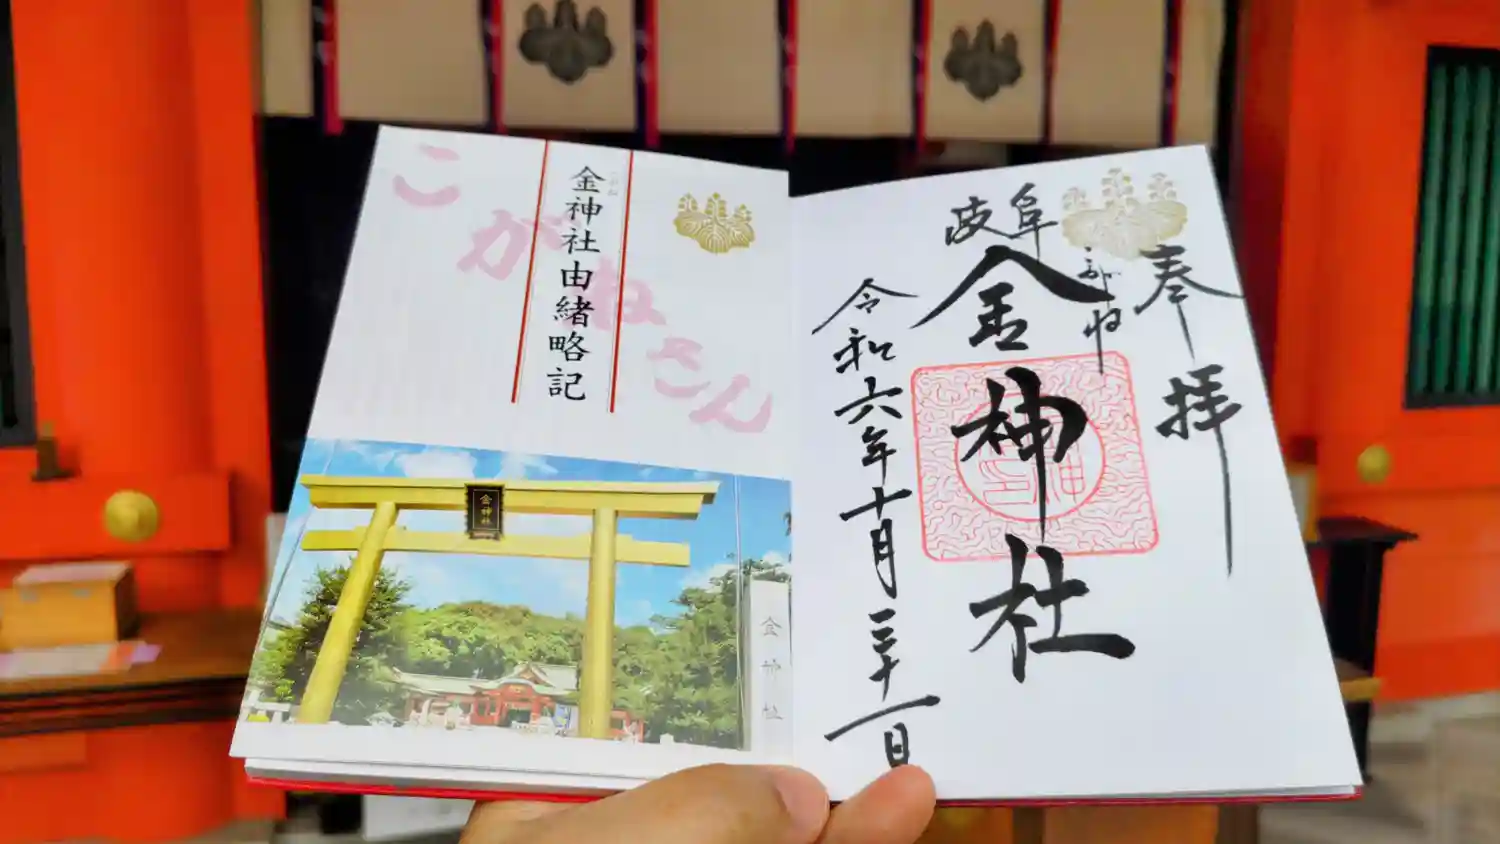 こがねさん
金神社由緒略記
金神社
金神社
奉拝
岐阜
こがね
金神社
令和六年十月三十一日